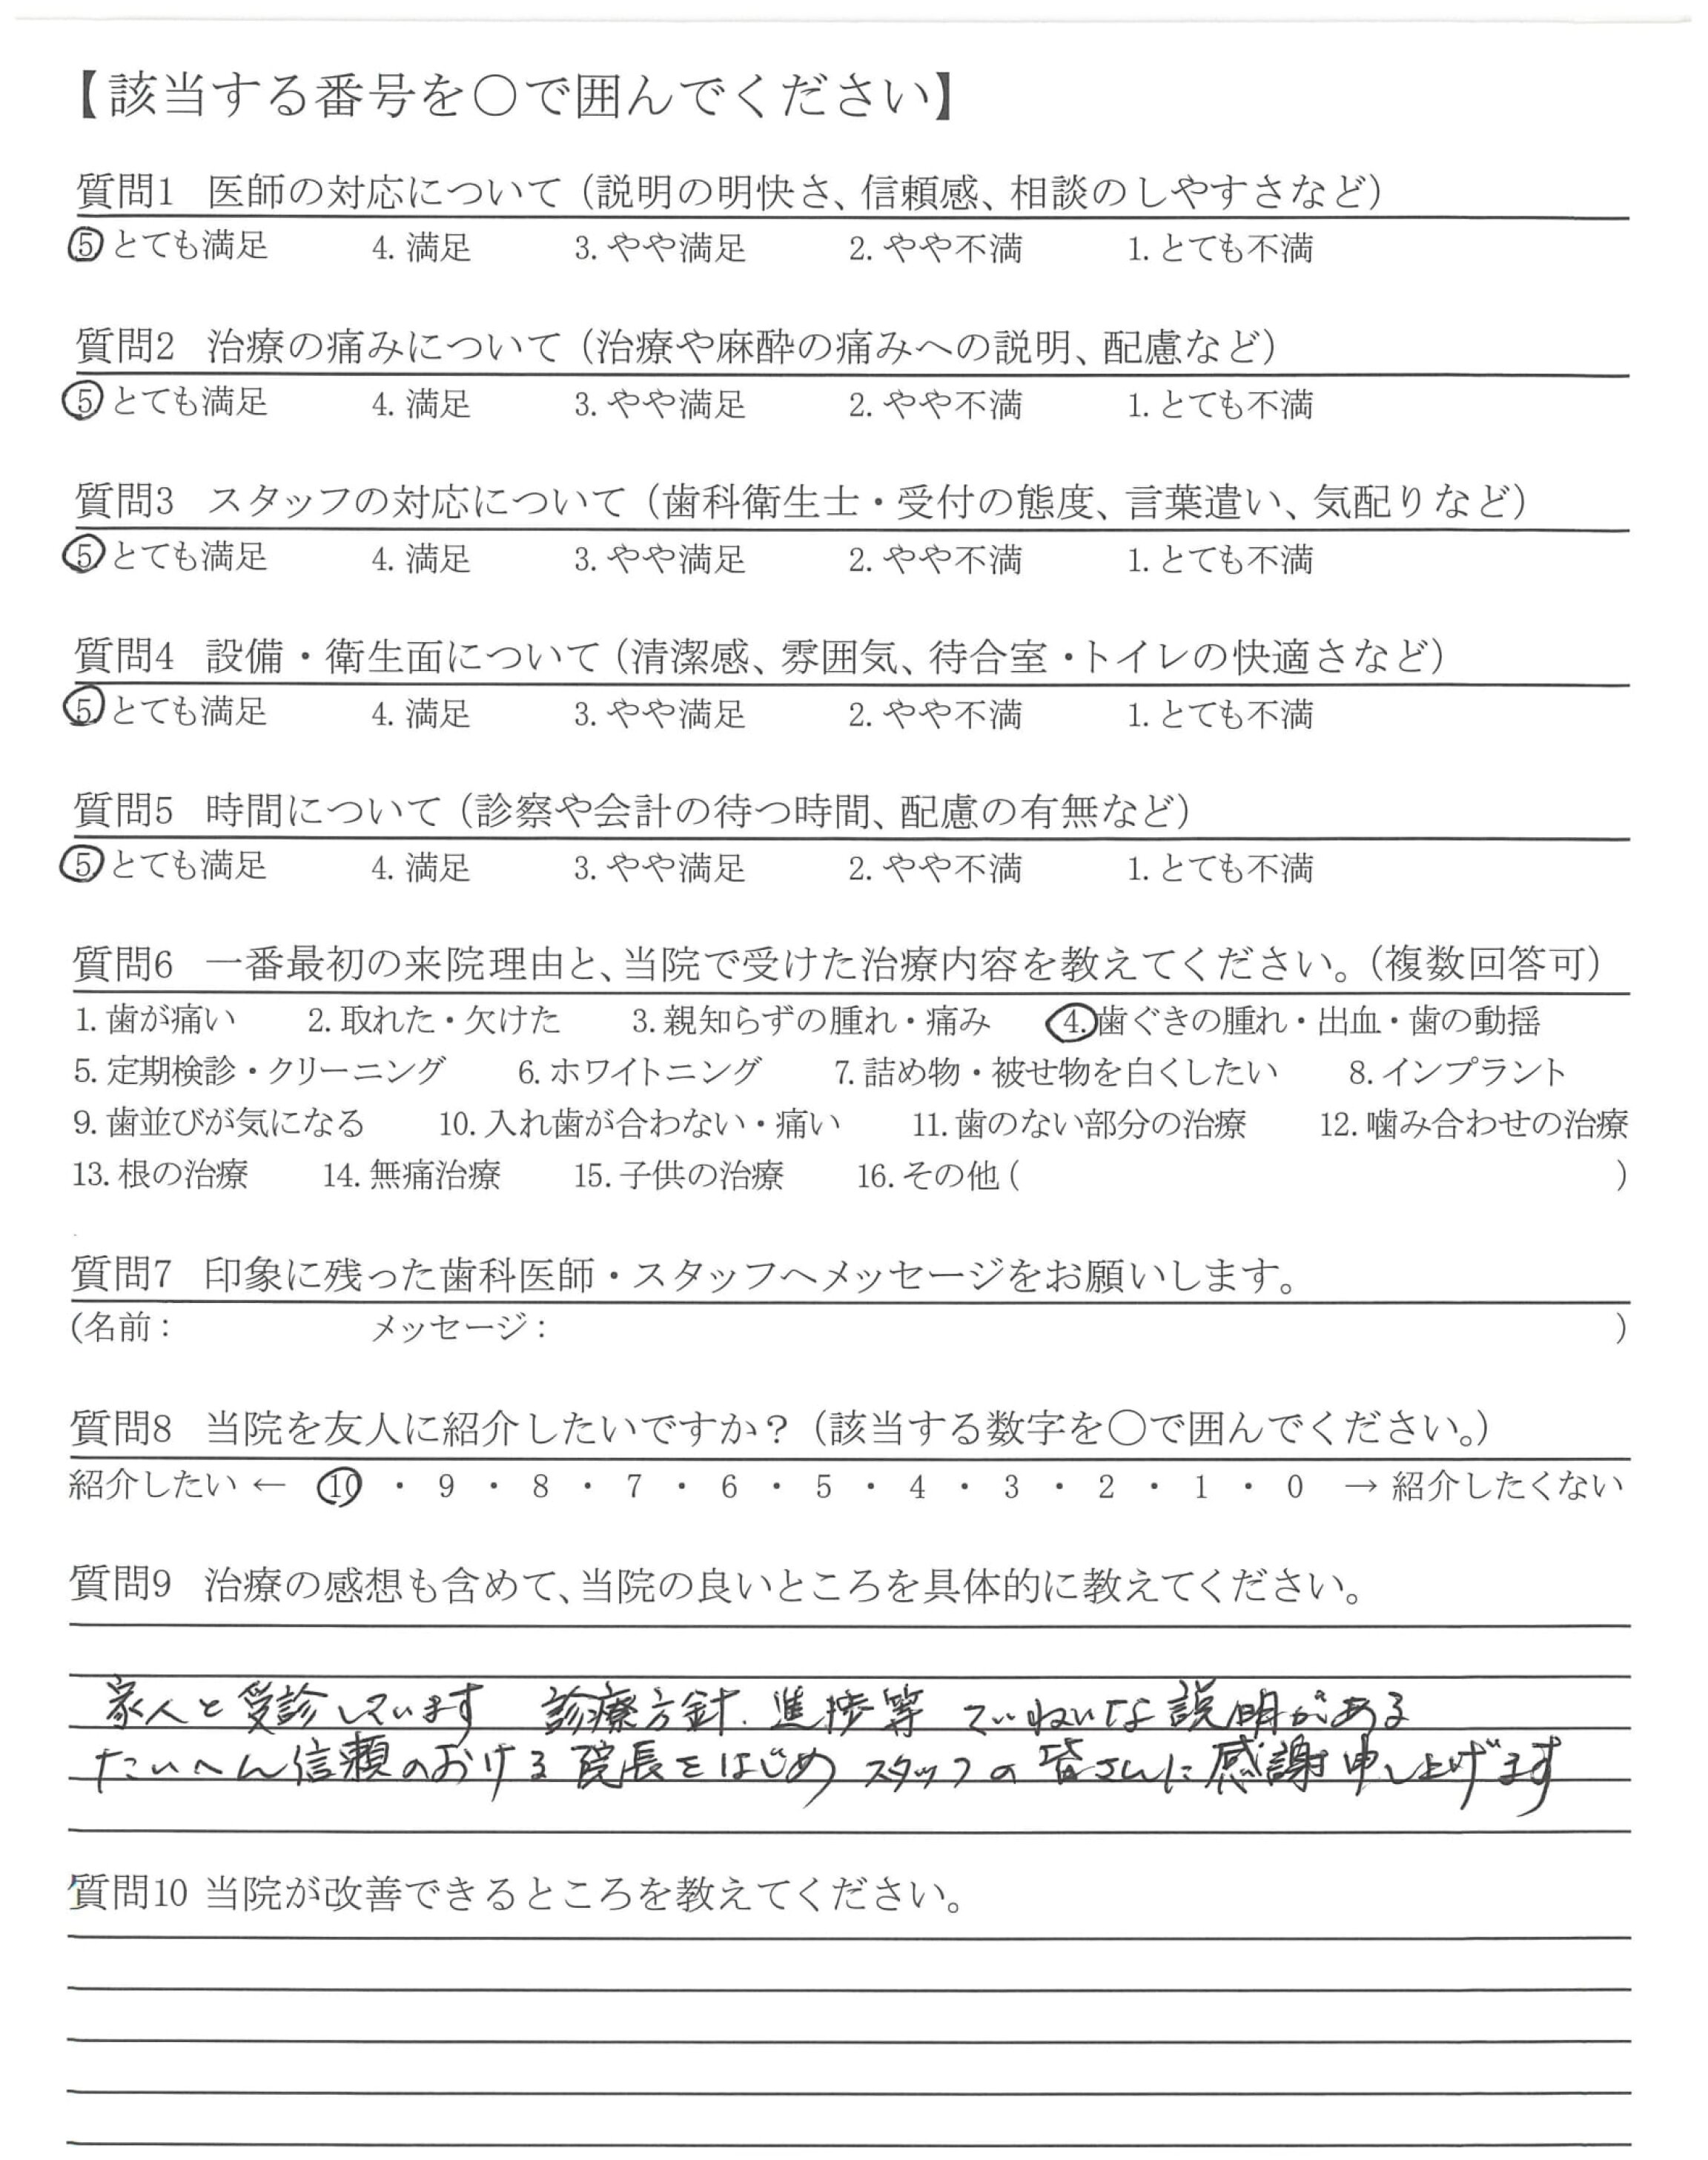 【該当する番号を○で囲んでください】
質問1 医師の対応について（説明の明快さ、信頼感、相談のしやすさなど）
5 とても満足 4. 満足 3. やや満足 2. やや不満 1. とても不満
質問2 治療の痛みについて（治療や麻酔の痛みへの説明、配慮など）
5. とても満足 4. 満足 3. やや満足 2. やや不満 1. とても不満
質問3 スタッフの対応について（歯科衛生士・受付の態度、言葉遣い、気配りなど）
5. とても満足 4. 満足 3. やや満足 2. やや不満 1. とても不満
質問4 設備・衛生面について（清潔感、雰囲気、待合室・トイレの快適さなど）
5. とても満足 4. 満足 3. やや満足 2. やや不満 1. とても不満
質問5 時間について（診察や会計の待つ時間、配慮の有無など）
5. とても満足 4. 満足 3. やや満足 2. やや不満 1. とても不満
質問6 一番最初の来院理由と、当院で受けた治療内容を教えてください。（複数回答可）
1. 歯が痛い 2. 取れた・欠けた 3. 親知らずの腫れ・痛み 4. 歯ぐきの腫れ・出血・歯の動揺
5. 定期検診・クリーニング 6. ホワイトニング 7. 詰め物・被せ物を白くしたい 8. インプラント
9. 歯並びが気になる 10. 入れ歯が合わない・痛い 11. 歯のない部分の治療 12. 噛み合わせの治療
13. 根の治療 14. 無痛治療 15. 子供の治療 16. その他 ( )
質問7 印象に残った歯科医師・スタッフへメッセージをお願いします。
(名前： メッセージ： )
質問8 当院を友人に紹介したいですか？（該当する数字を○で囲んでください。）
紹介したい ← 10 ・ 9 ・ 8 ・ 7 ・ 6 ・ 5 ・ 4 ・ 3 ・ 2 ・ 1 ・ 0 → 紹介したくない
質問9 治療の感想も含めて、当院の良いところを具体的に教えてください。
家人と受診しています 診療方針、進捗等 ていねいな説明がある
たいへん信頼のおける院長をはじめ スタッフの皆さんに感謝申し上げます
質問10 当院が改善できるところを教えてください。